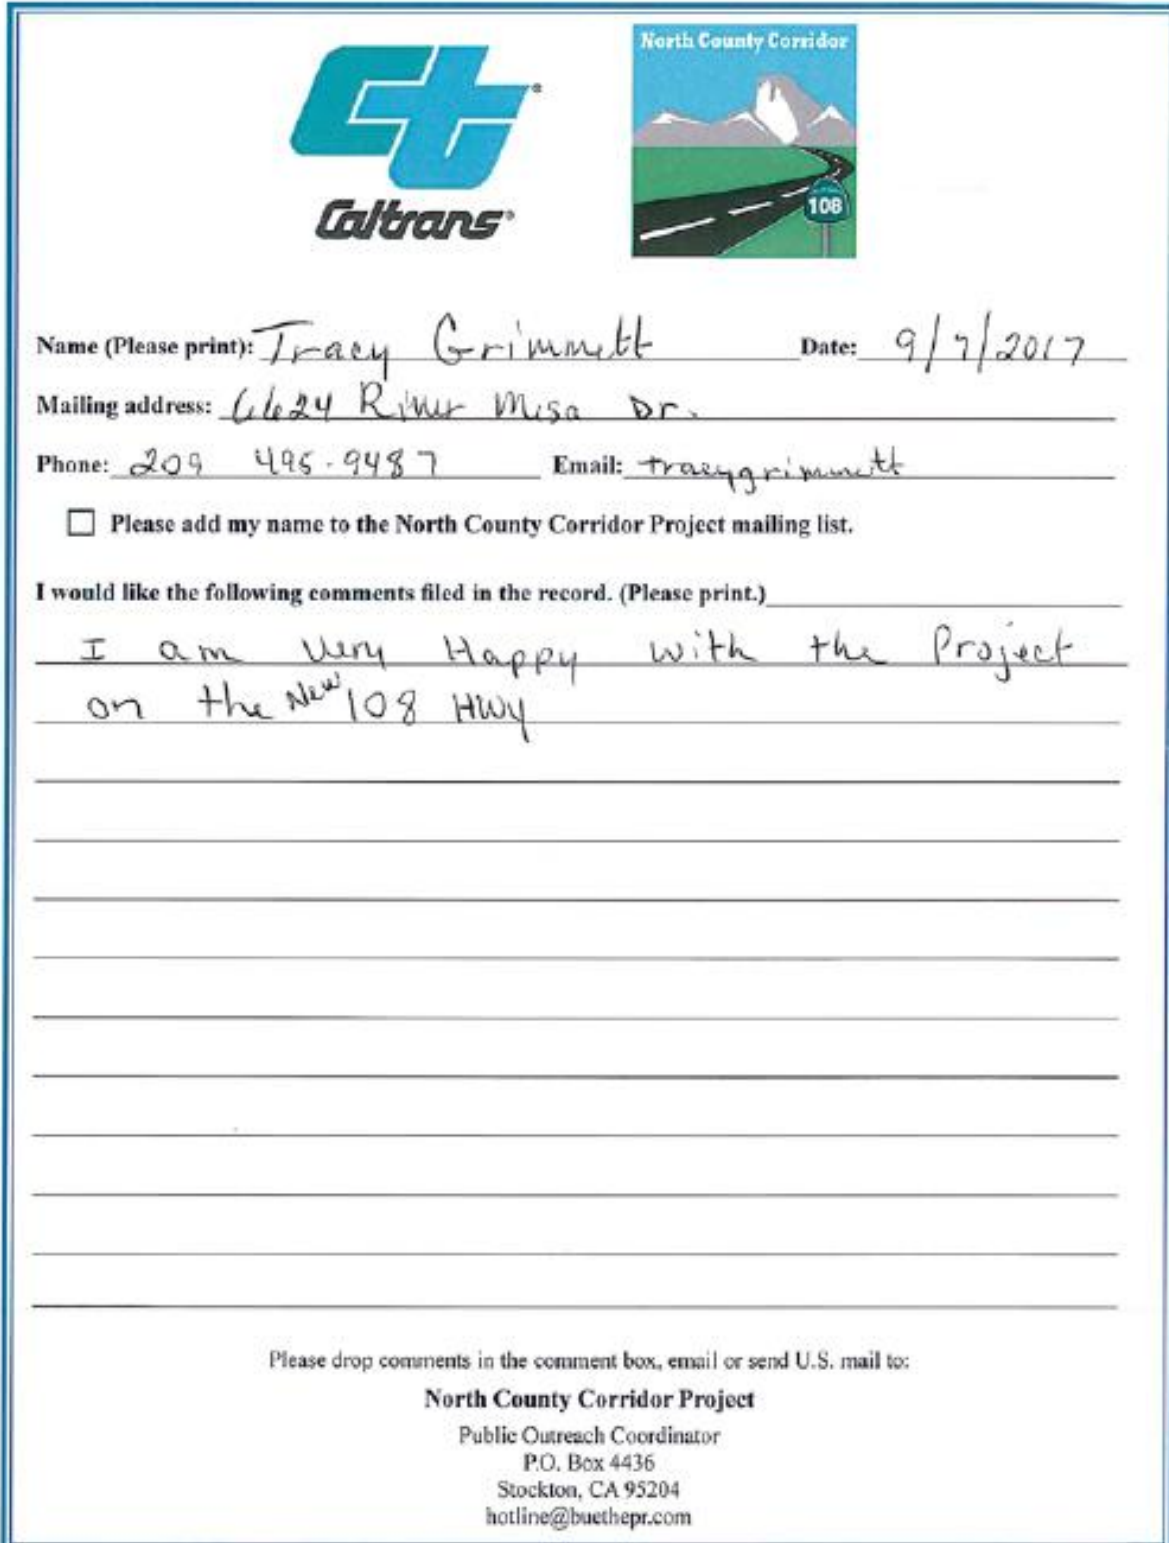 North County Corridor
Ct
Caltrans
108
Name (Please print): Tracy Grimmett Date: 9/7/2017
Mailing address: 6624 River Mesa Dr.
Phone: 209 495-9487 Email: tracygrimmett
Please add my name to the North County Corridor Project mailing list.
I would like the following comments filed in the record. (Please print.)
I am very Happy with the Project
on the New 108 HWY
Please drop comments in the comment box, email or send U.S. mail to:
North County Corridor Project
Public Outreach Coordinator
P.O. Box 4436
Stockton, CA 95204
hotline@buethepr.com